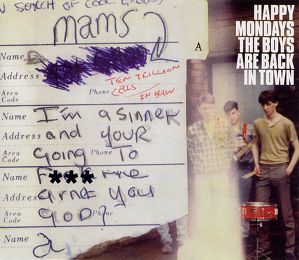 N SEARCH OF COOL GROOVES
mams
HAPPY
MONDAYS
THE BOYS
ARE BACK
IN TOWN
A
Name
Address
TEN TRILLION
CELLS
IN BRAIN
Area
Code
Phone
Name I'm a sinner
Address and your
Area
Code
going TO
Name F***me
Address arnt you
Area
Code
GOD?
Phone
Name